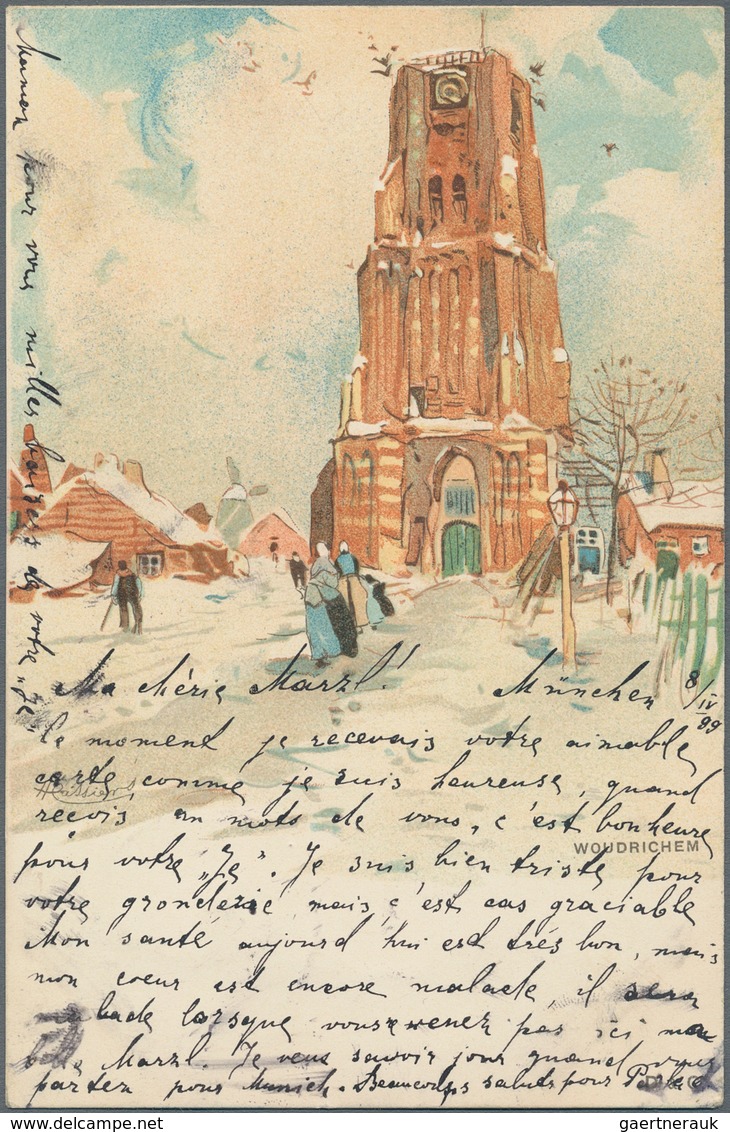 Maman pour vous milles baisers de votre „Je"
Ma chérie Marzl! München 8/IV 99
le moment je recevais votre aimable
carte comme je suis heureuse, quand
recois un mots de vous, c'est bonheure
WOUDRICHEM
pour votre „Je". Je suis bien triste pour
votre gronderie mais c'est cas graciable
Mon santé aujourd hui est trés bon, mais
mon coeur est encore malade il sera
lorsque vous venez pas ici ma
Marzl. Je veus savoir jour quand vous
partez pour Munich. Beaucoups saluts pour
gaertnerauk / delcampe.net